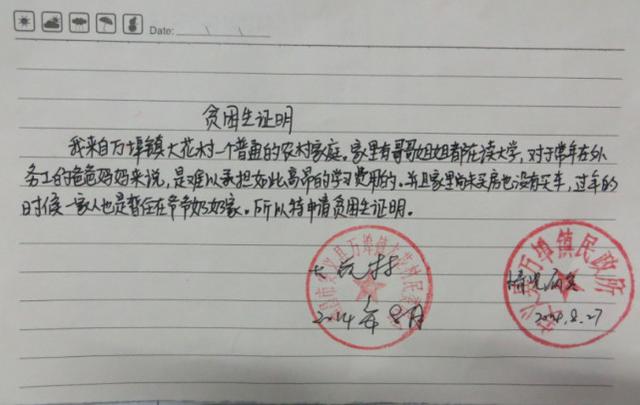 Date:
贫困生证明
我来自万埠镇大花村一个普通的农村家庭。家里有哥哥姐姐都在读大学,对于常年在外
务工的爸爸妈妈来说,是难以承担如此高昂的学习费用的。并且家里尚未买房也没有买车,过年的
时候一家人也是暂住在爷爷奶奶家。所以特申请贫困生证明。
情况属实
2014年8月
2014.8.27
义县万埠镇
万埠镇民政府